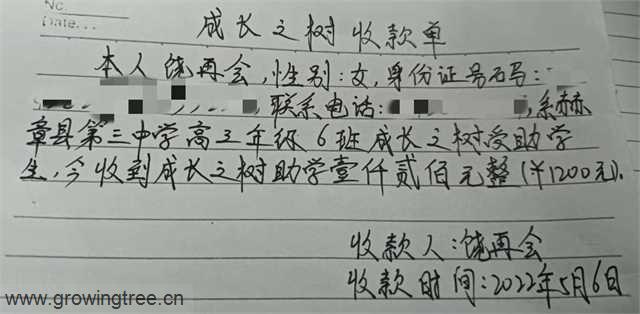 No.
Date...
成长之树收款单
本人饶再会,性别:女,身份证号码:
,联系电话: ,系赫
章县第三中学高三年级6班成长之树受助学
生,今收到成长之树助学壹仟贰佰元整(¥1200元).
收款人:饶再会
收款时间:2022年5月6日
www.growingtree.cn